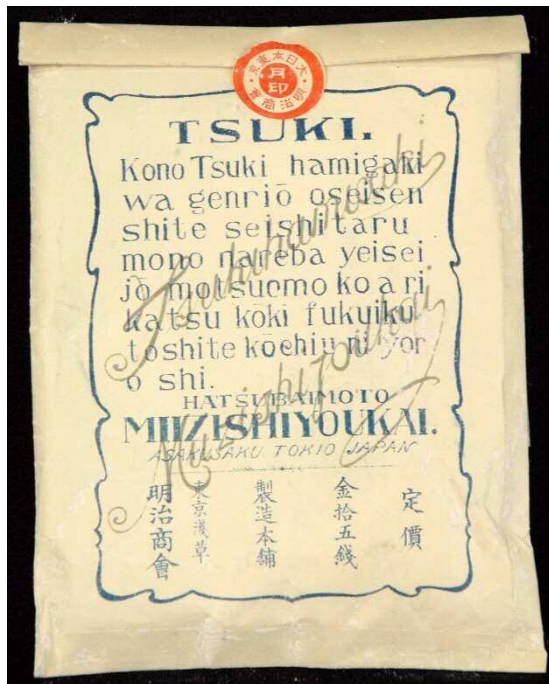 大日本東京
月印
明治商會
TSUKI.
Kono Tsuki hamigaki
wa genriō oseisen
shite seishitaru
mono nareba yeisei
jō motsuomo ko a ri
katsu kōki fukuiku
toshite kōchiu ni yor
o shi.
HATSUBAIMOTO
MIIZISHIYOUKAI.
ASAKUSAKU TOKIO JAPAN
定價
金拾五錢
製造本舗
東京淺草
明治商會